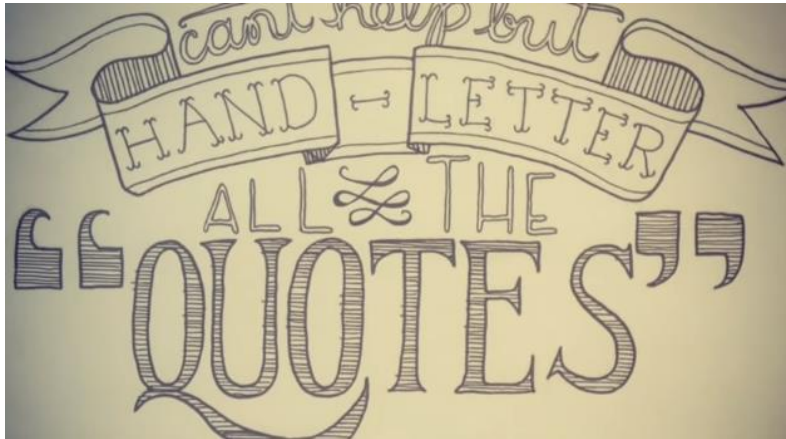 can't help but
HAND-LETTER
ALL THE
“QUOTES”